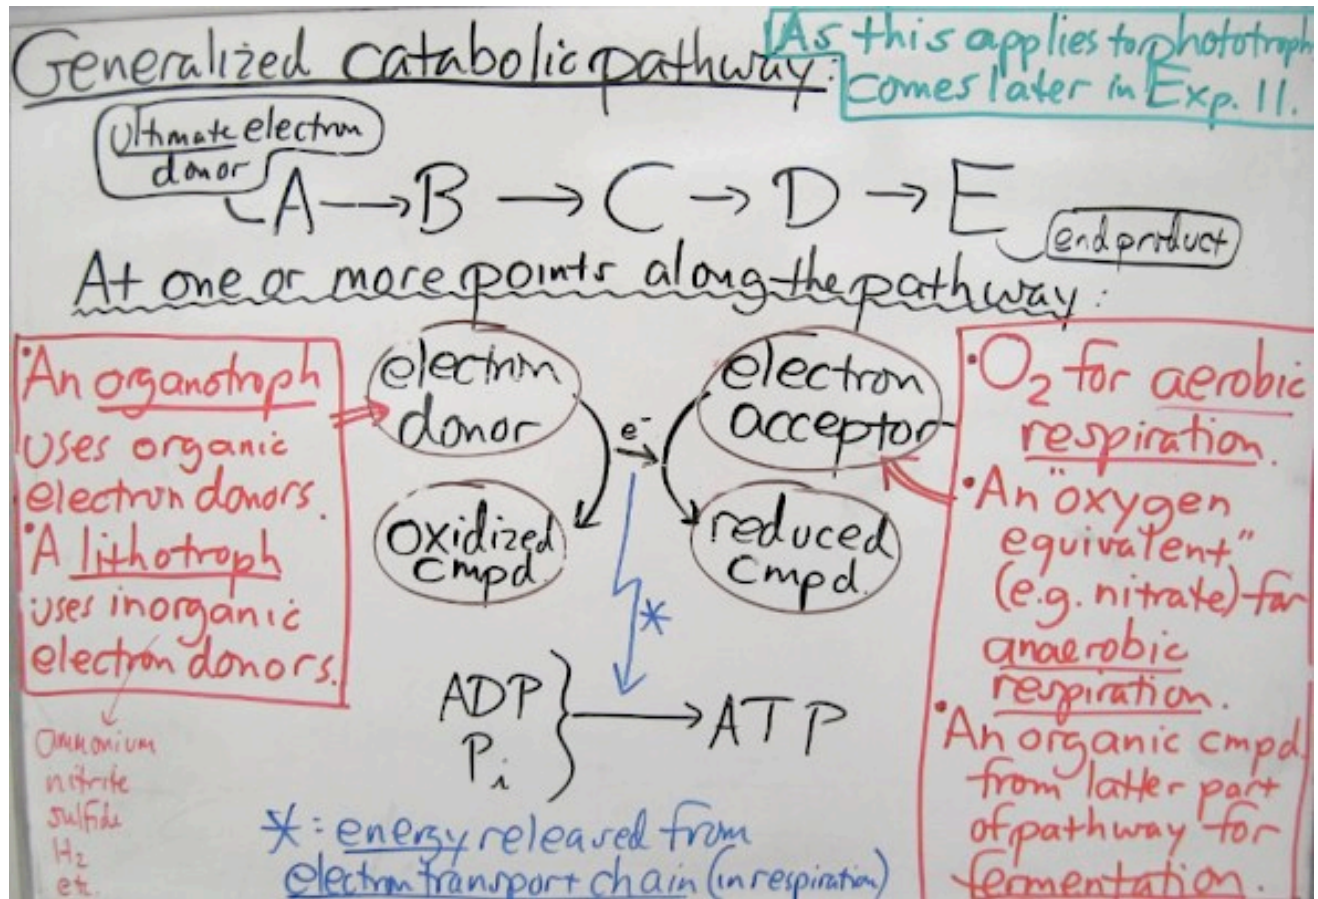 Generalized catabolic pathway:
As this applies to phototroph
comes later in Exp. 11.
Ultimate electron
donor
A → B → C → D → E
end product
At one or more points along the pathway:
• An organotroph
uses organic
electron donors.
• A lithotroph
uses inorganic
electron donors.
ammonium
nitrite
sulfide
H₂
etc.
electron
donor
oxidized
cmpd.
e⁻
electron
acceptor
reduced
cmpd.
*
ADP
Pi
ATP
*: energy released from
electron transport chain (in respiration)
• O₂ for aerobic
respiration.
• An "oxygen
equivalent"
(e.g. nitrate) for
anaerobic
respiration.
• An organic cmpd.
from latter part
of pathway for
fermentation.